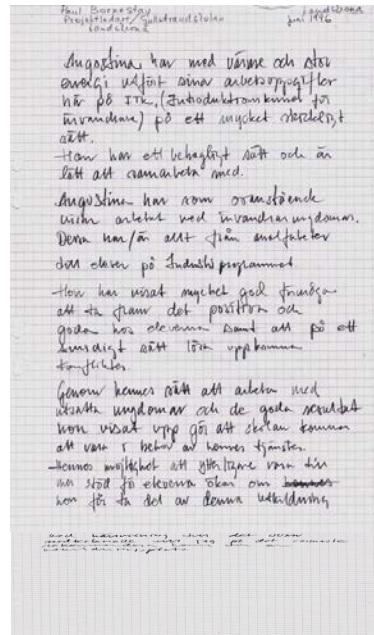 Paul Bornestav Landskrona
Projektledare/Gullstrandskolan juni 1996
Landskrona
Angostina har med värme och stor
energi utfört sina arbetsuppgifter
här på ITK, (Introduktionskurs för
invandrare) på ett mycket skickligt
sätt.
Hon har ett behagligt sätt och är
lätt att samarbeta med.
Angostina har som ovanstående
visar arbetat med invandrarungdomar.
Dessa har/är allt från analfabeter
till elever på Industriprogrammet.
Hon har visat mycket god förmåga
att ta fram det positiva och
goda hos eleverna samt att på ett
smidigt sätt lösa uppkomna
konflikter.
Genom hennes sätt att arbeta med
utsatta ungdomar och de goda resultat
hon visat upp gör att skolan kommer
att vara i behov av hennes tjänster.
Hennes möjlighet att ytterligare vara till
mer stöd för eleverna ökar om
hon får ta del av denna utbildning